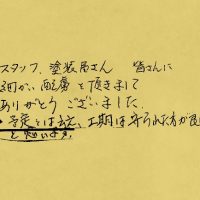 スタッフ、塗装屋さん 皆さんに
細かい配慮を頂きまして
ありがとうございました。
・予定とは 工期は守られた方が良
と思います。